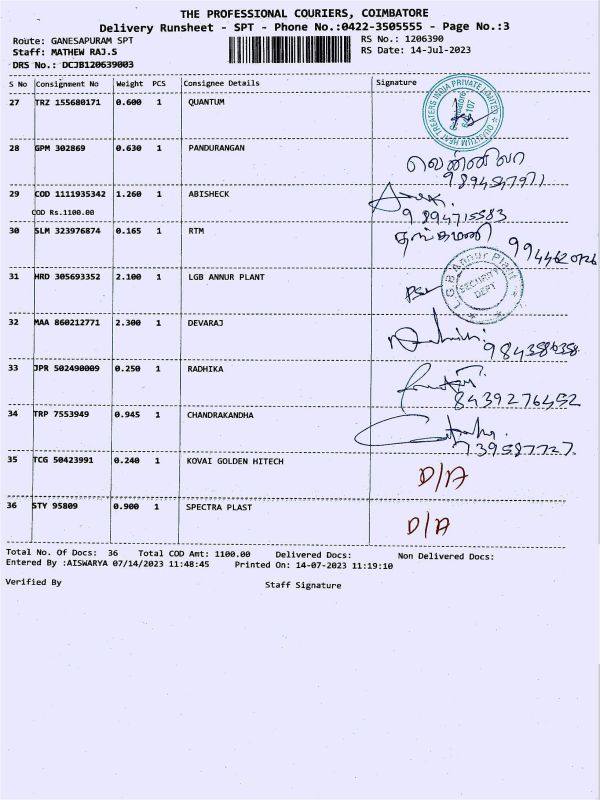 THE PROFESSIONAL COURIERS, COIMBATORE
Delivery Runsheet - SPT - Phone No.:0422-3505555 - Page No.:3
Route: GANESAPURAM SPT RS No.: 1206390
Staff: MATHEW RAJ.S RS Date: 14-Jul-2023
DRS No.: DCJB120639003
S No Consignment No Weight PCS Consignee Details Signature
27 TRZ 155680171 0.600 1 QUANTUM
QUANTUM HEAT TREATERS INDIA PRIVATE LIMITED
28 GPM 302869 0.630 1 PANDURANGAN வெண்ணிலா
9894547971
29 COD 1111935342 1.260 1 ABISHECK
COD Rs.1100.00 9894715583
30 SLM 323976874 0.165 1 RTM தங்கமணி
31 HRD 305693352 2.100 1 LGB ANNUR PLANT
L.G.B Annur Plant
SECURITY
DEPT
32 MAA 860212771 2.300 1 DEVARAJ
33 JPR 502490009 0.250 1 RADHIKA
8439276452
34 TRP 7553949 0.945 1 CHANDRAKANDHA
739587727
35 TCG 50423991 0.240 1 KOVAI GOLDEN HITECH D/A
36 STY 95809 0.900 1 SPECTRA PLAST D/A
Total No. Of Docs: 36 Total COD Amt: 1100.00 Delivered Docs: Non Delivered Docs:
Entered By :AISWARYA 07/14/2023 11:48:45 Printed On: 14-07-2023 11:19:10
Verified By Staff Signature